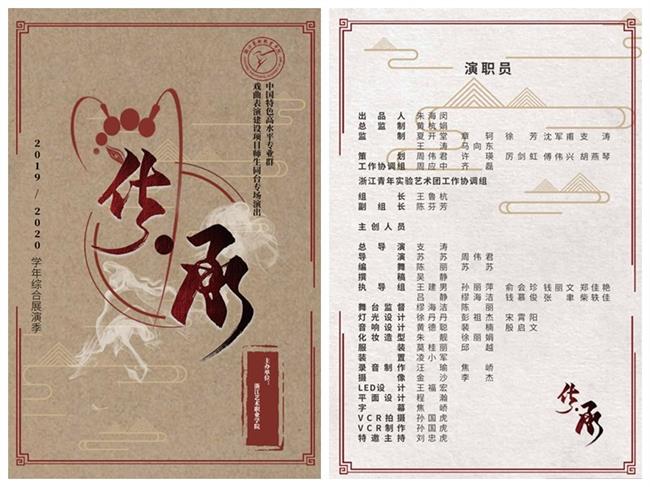 浙江艺术职业学院
中国特色高水平专业群
戏曲表演建设项目师生同台专场演出
传·承
2019/2020学年综合展演季
主办单位:
浙江艺术职业学院
演职员
出品人 朱海闵
总监制 黄杭娟
监制 夏开堂 章轲 徐芳 沈军甫 支涛
王涛 马向东
策划 周伟君 许瑛 厉剑虹 傅伟兴 胡燕琴
工作协调组 周应中 齐磊
浙江青年实验艺术团工作协调组
组长 王鲁杭
副组长 陈芬芳
主创人员
总导演 支涛
导演 苏苏 周伟君
编舞 陈丽 苏苏
撰稿 吴静
执导组 王建男 孙丽萍 俞会珍 钱丽文 郑佳艳
吕静 缪海洁 钱慕俊 张聿 柴轶佳
舞台监督 缪海洁 陈丽
灯光设计 徐丹丹 彭祖杰 宋霄阳
音响设计 黄德聪 裴楠 殷启文
化妆造型 朱靓 徐丽娟
服装 莫桂丽 邱越
装置 凌小军
录音制作 汪瑜 焦峤
摄像 金沙 李杰
LED设计 王福宏
平面设计 程瀚
字幕 焦峤
VCR拍摄 孙国虎
VCR制作 孙国虎
特邀主持 刘忠虎
传·承